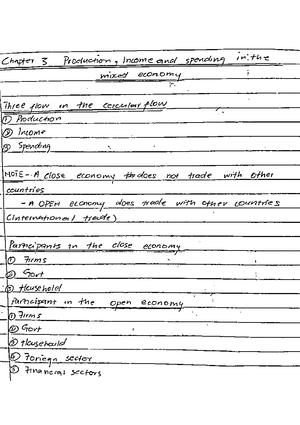 Chapter 3 Production, Income and spending in the
mixed economy
Three flow in the cercular flow
① Production
② Income
③ Spending
NOTE-. A close economy does not trade with other
countries
- A OPEN economy does trade with other countries
(International trade)
Participants in the close economy
① Firms
② Govt
③ Household
Participant in the open economy
① Firms
② Govt
③ Household
④ Foriegn sector
⑤ Financial sectors